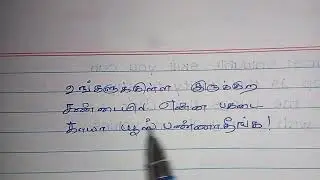 உங்களுக்குள்ள இருக்கிற
சண்டையில என்ன பகடை
காயா யூஸ் பண்ணாதீங்க!